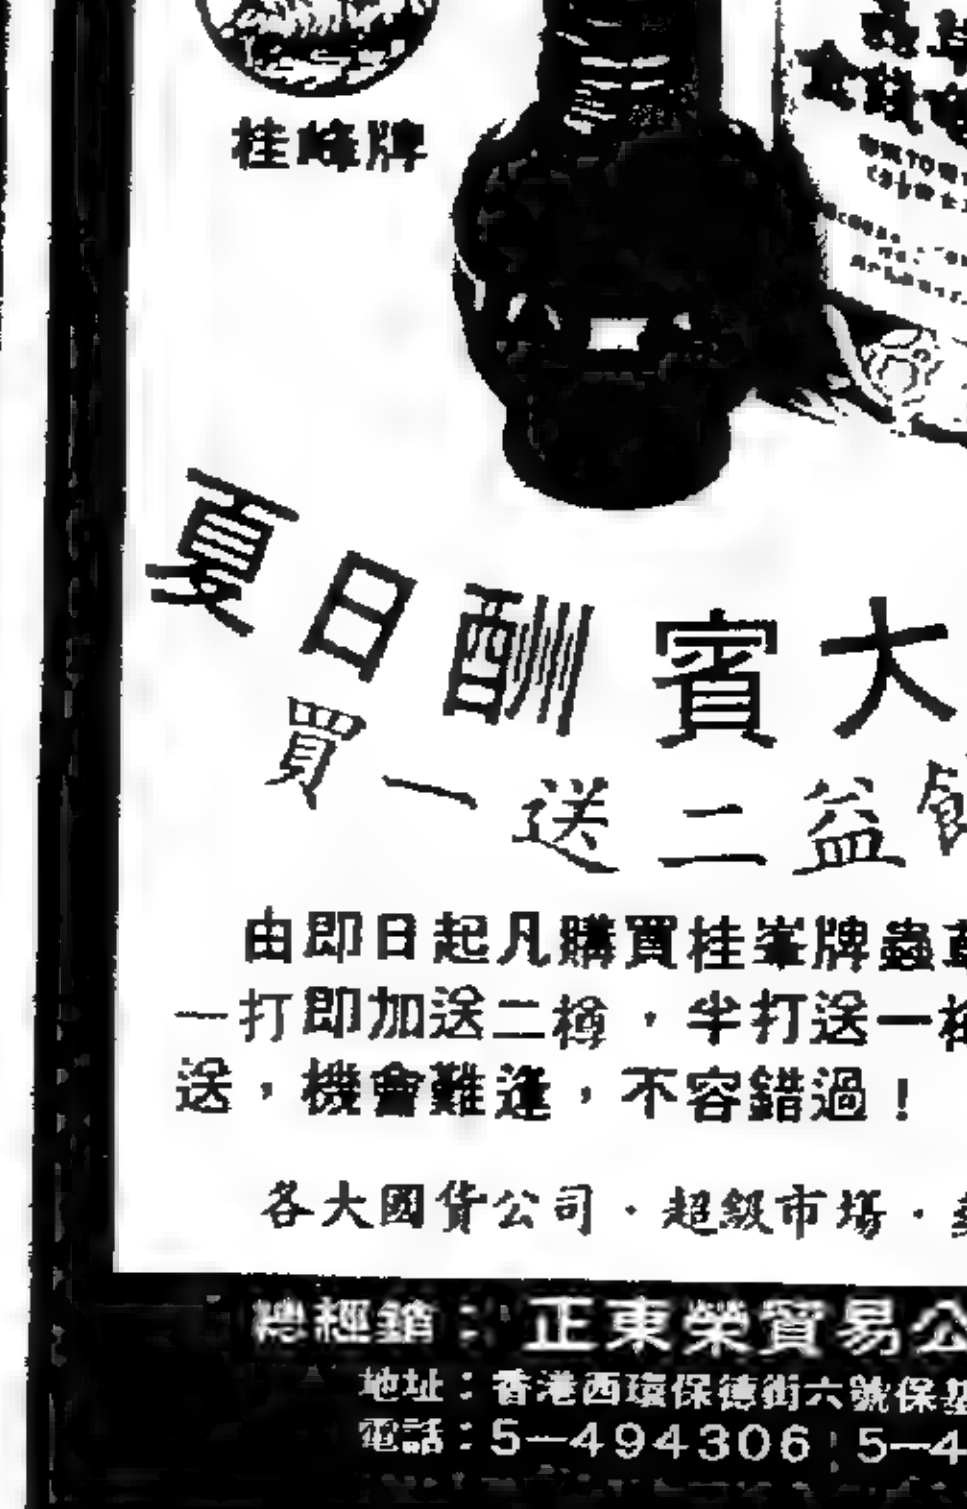 桂峰牌
夏日酬賓大
買一送二益
由即日起凡購買桂峯牌蟲
一打即加送二樽，半打送一樽
送，機會難逢，不容錯過！
各大國貨公司·超級市場·
總經銷：正東榮貿易公
地址：香港西環保德街六號保基
電話：5—494306 5—4